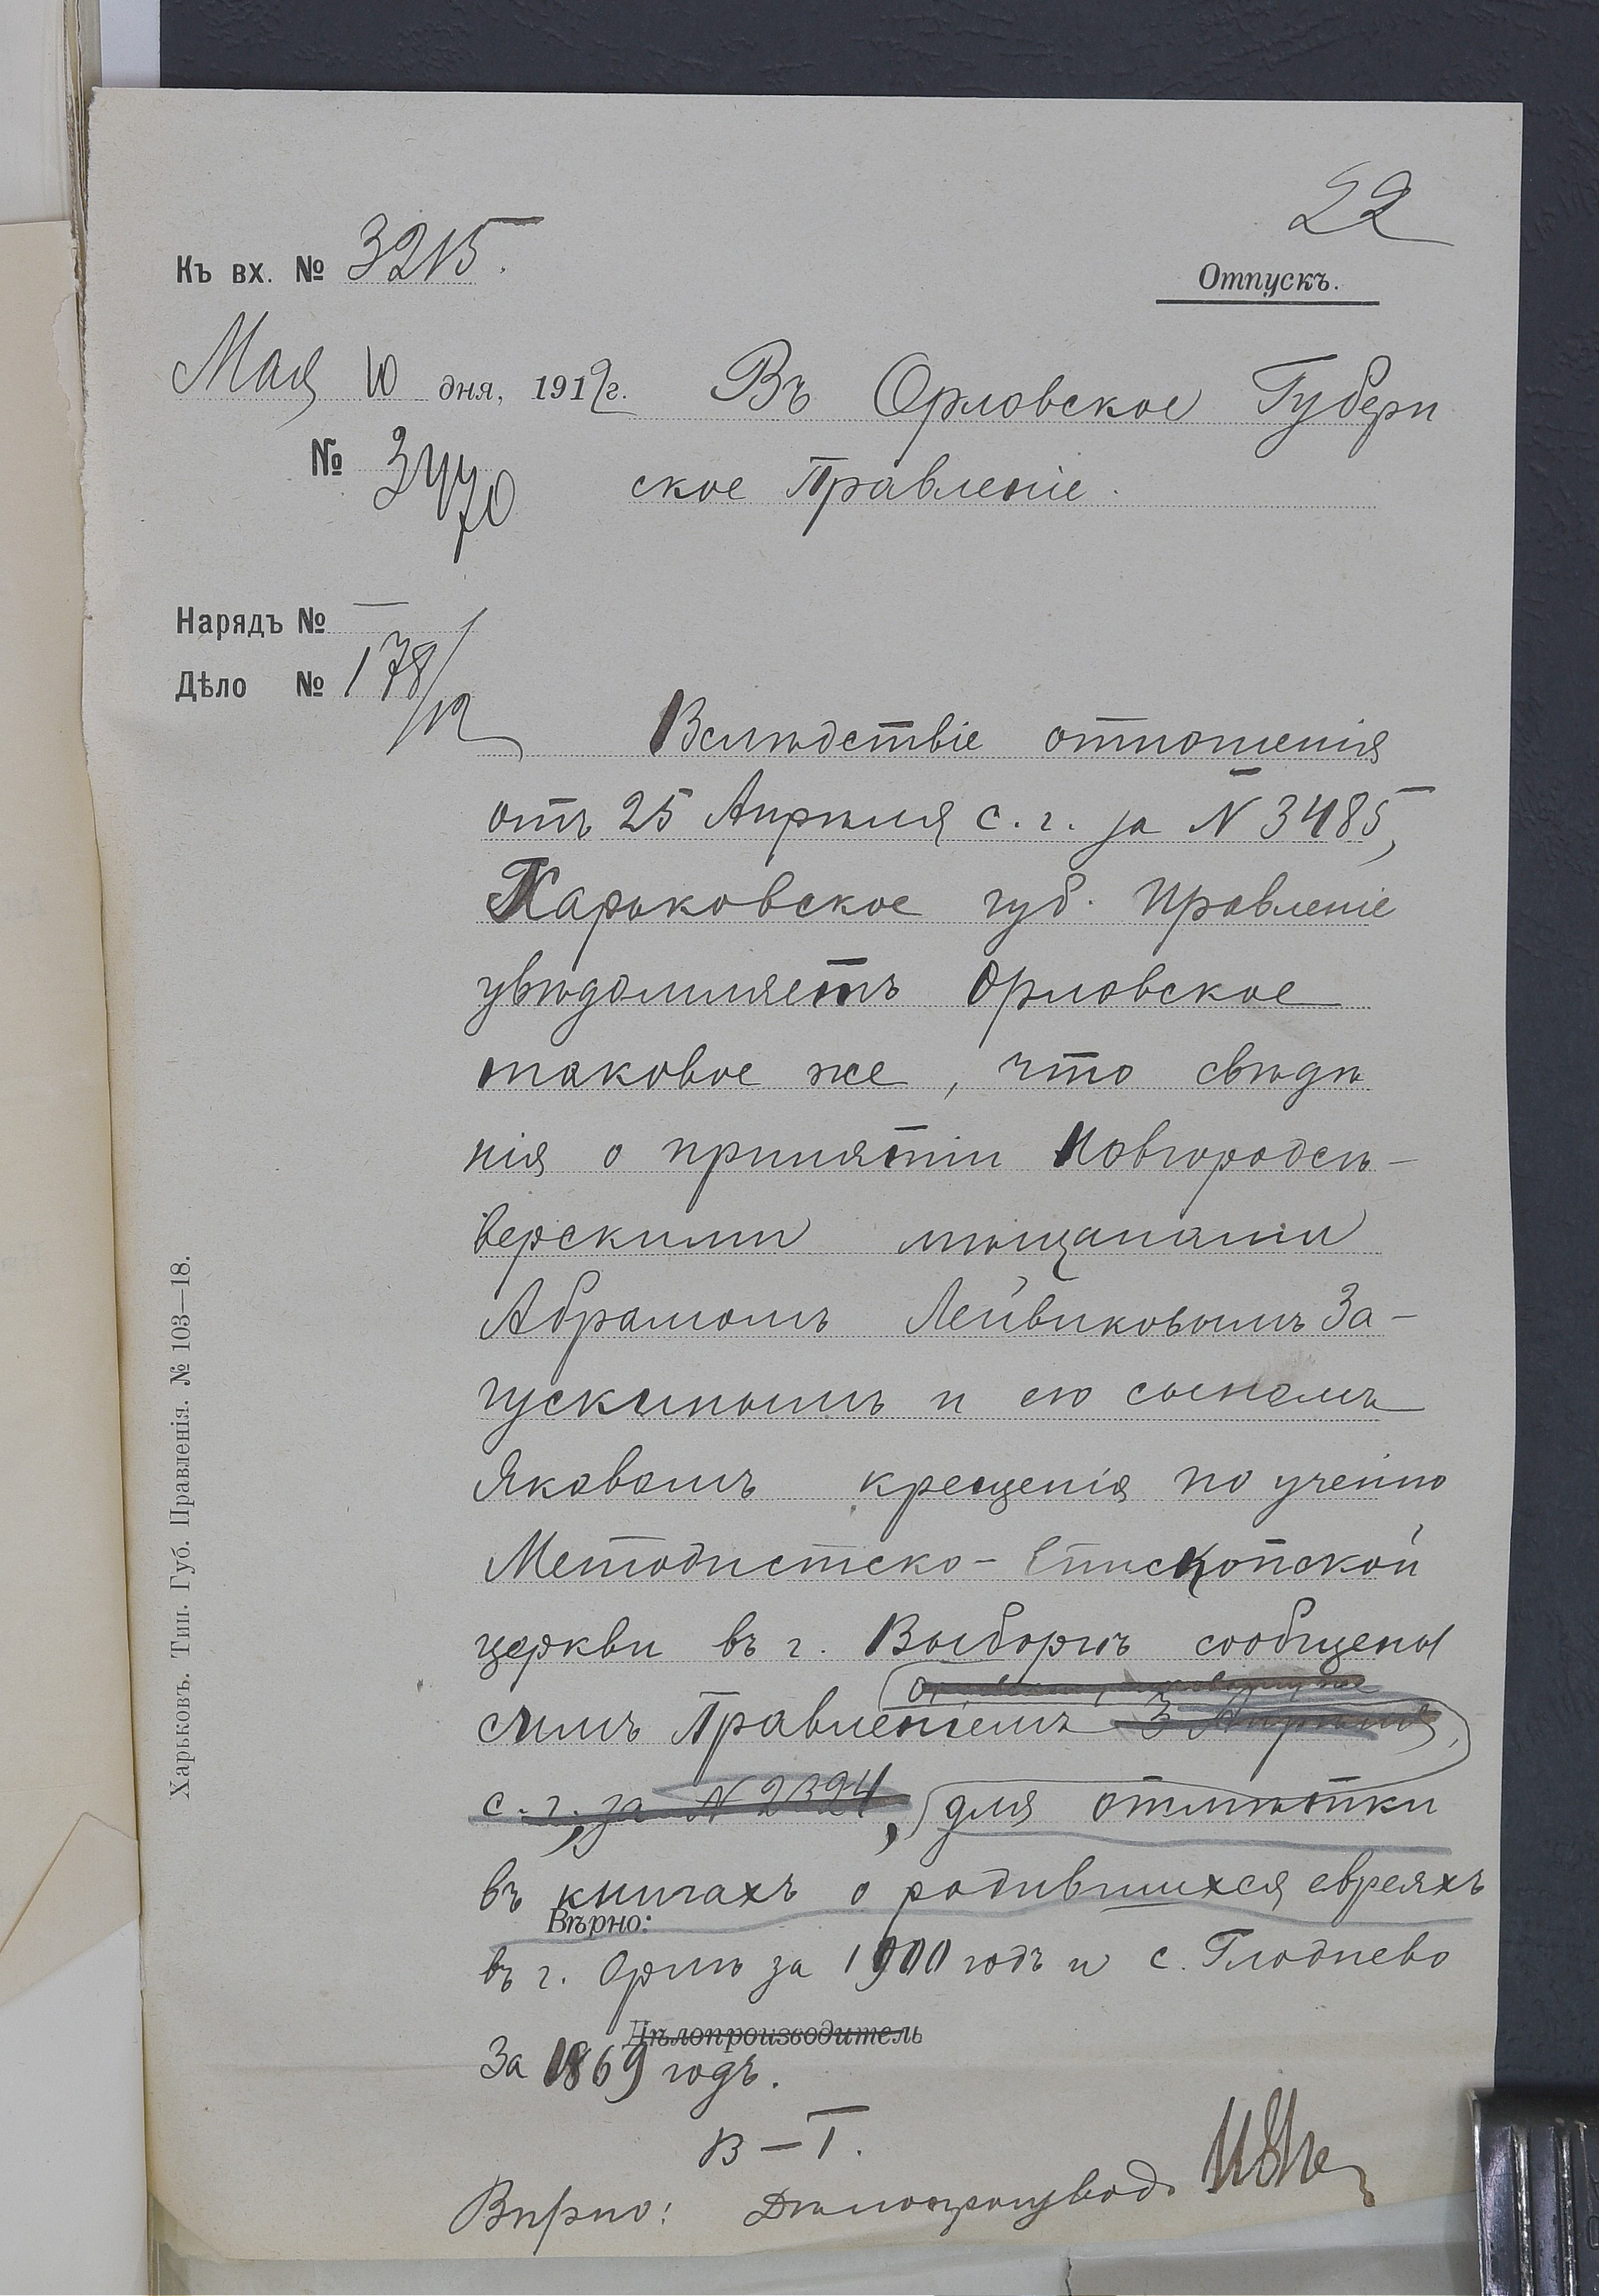 22
Къ вх. № 3215.
Отпускъ.
Мая 10 дня, 1912г. Въ Орловское Губерн
№ 3470 ское Правленіе.
Нарядъ № —
Дѣло № 178/12
Вслѣдствіе отношенія
отъ 25 Апрѣля с. г. за N 3485,
Харьковское губ. Правленіе
увѣдомляетъ Орловское
таковое же, что свѣдѣ
нія о принятіи Новгородсѣ-
верскими мѣщанами
Абрамомъ Лейвиковымъ За-
гускинымъ и его сыномъ
Яковомъ крещенія по ученію
Методистско-Епископской
церкви въ г. Выборгѣ сообщены
Орловскому, таковому же
симъ Правленіемъ 3 Апрѣля,
с. г., за N 2324, для отмѣтки
въ книгахъ о родившихся евреяхъ
Вѣрно:
въ г. Орлѣ за 1900 годъ и с. Глоднево
Дѣлопроизводитель
за 1869 годъ.
В — Г.
Вѣрно: Дѣлопроизвод.
Харьковъ. Тип. Губ. Правленія. № 103—18.